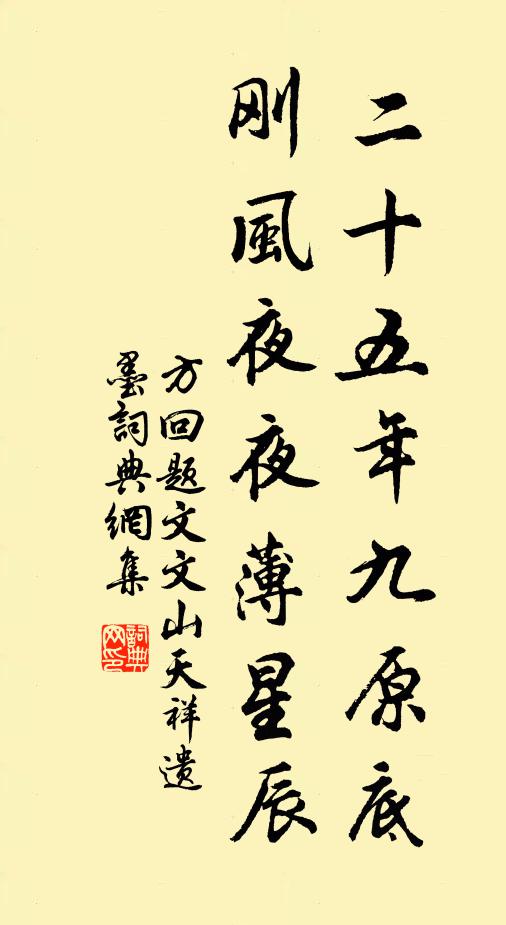 二十五年九原底
刚風夜夜薄星辰
方回题文文山天祥遗
墨詞典網集
詞典
网印